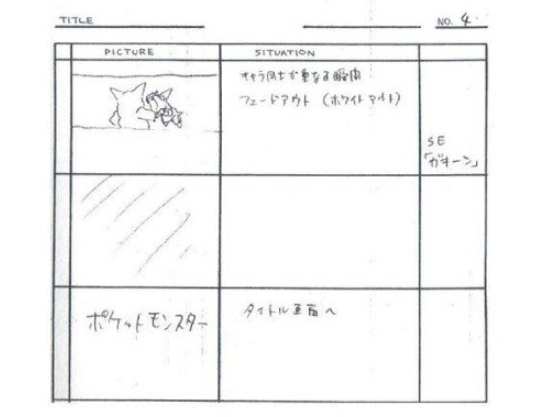 TITLE
NO. 4
PICTURE SITUATION
キャラ同士が重なる瞬間
フェードアウト (ホワイトアウト)
SE
「ガキーン」
ポケットモンスター
タイトル画面へ